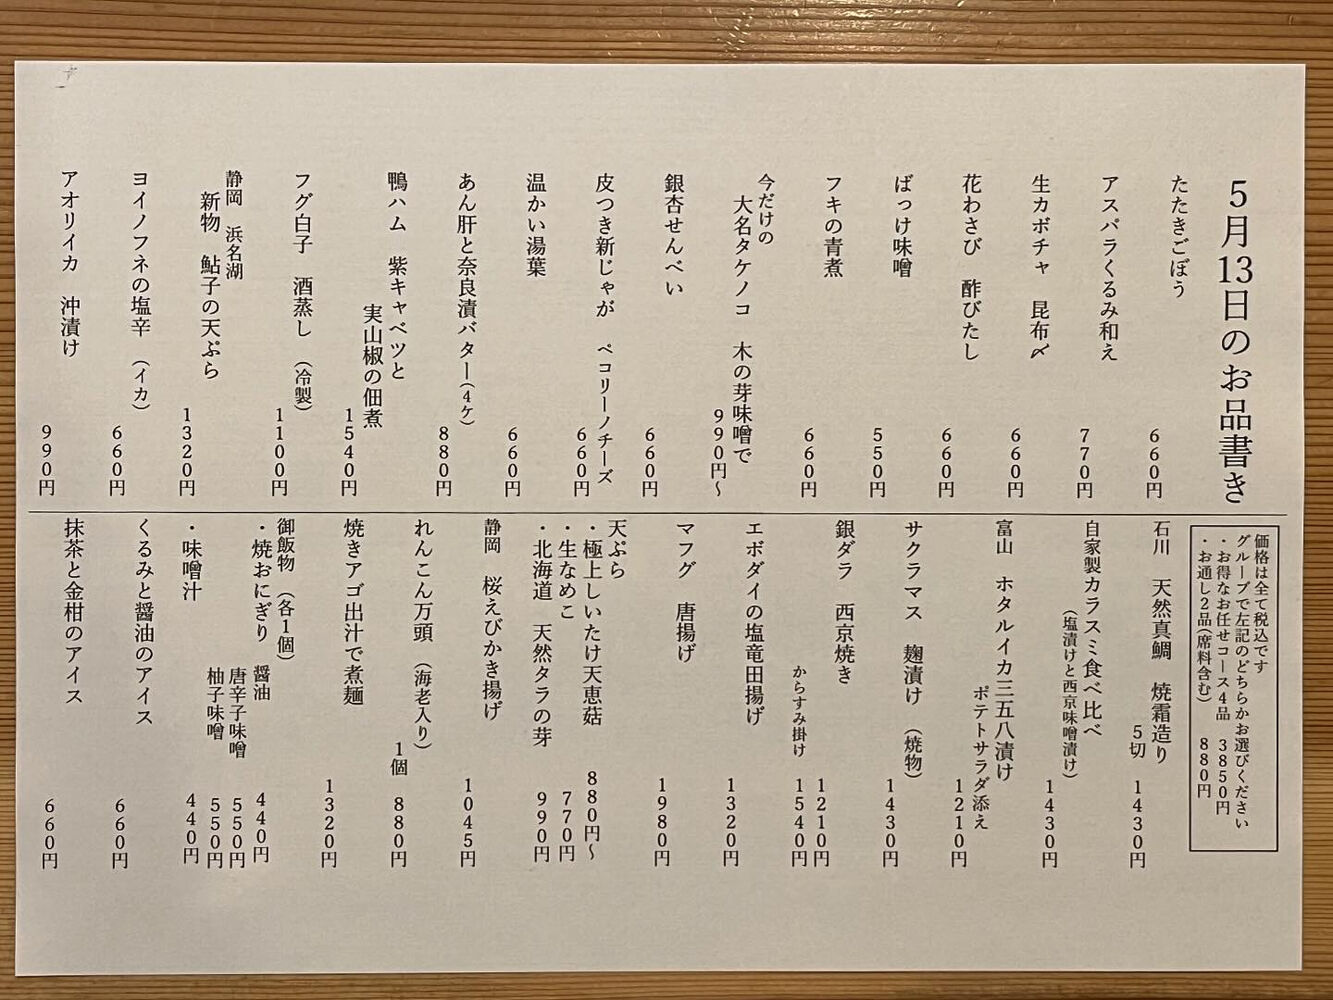 5月13日のお品書き
たたきごぼう
660円
アスパラくるみ和え
770円
生カボチャ 昆布〆
660円
花わさび 酢びたし
660円
ばっけ味噌
550円
フキの青煮
660円
今だけの
大名タケノコ 木の芽味噌で
990円〜
銀杏せんべい
660円
皮つき新じゃが ペコリーノチーズ
660円
温かい湯葉
660円
あん肝と奈良漬バター(4ケ)
880円
鴨ハム 紫キャベツと
実山椒の佃煮
1540円
フグ白子 酒蒸し (冷製)
1100円
静岡 浜名湖
新物 鮎子の天ぷら
1320円
ヨイノフネの塩辛 (イカ)
660円
アオリイカ 沖漬け
990円
価格は全て税込です
グループで左記のどちらかお選びください
・お得なお任せコース4品 3850円
・お通し2品(席料含む) 880円
石川 天然真鯛 焼霜造り
5切 1430円
自家製カラスミ食べ比べ
(塩漬けと西京味噌漬け)
1430円
富山 ホタルイカ三五八漬け
ポテトサラダ添え
1210円
サクラマス 麹漬け (焼物)
1430円
銀ダラ 西京焼き
1210円
からすみ掛け 1540円
エボダイの塩竜田揚げ
1320円
マフグ 唐揚げ
1980円
天ぷら
・極上しいたけ天恵菇 880円〜
・生なめこ 770円
・北海道 天然タラの芽 990円
静岡 桜えびかき揚げ
1045円
れんこん万頭 (海老入り)
1個 880円
焼きアゴ出汁で煮麺
1320円
御飯物 (各1個)
・焼おにぎり 醤油 440円
唐辛子味噌 550円
柚子味噌 550円
・味噌汁 440円
くるみと醤油のアイス
660円
抹茶と金柑のアイス
660円